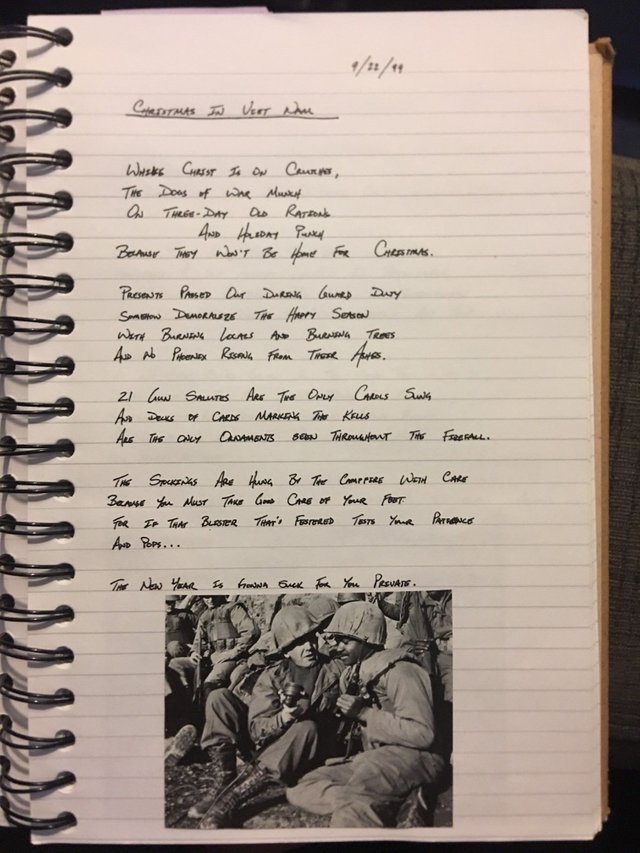 9/22/99
CHRISTMAS IN VIET NAM
WHILE CHRIST IS ON CRUTCHES,
THE DOGS OF WAR MUNCH
ON THREE-DAY OLD RATIONS
AND HOLIDAY PUNCH
BECAUSE THEY WON'T BE HOME FOR CHRISTMAS.
PRESENTS PASSED OUT DURING GUARD DUTY
SOMEHOW DEMORALIZE THE HAPPY SEASON
WITH BURNING LOCALS AND BURNING TREES
AND NO PHOENIX RISING FROM THEIR ASHES.
21 GUN SALUTES ARE THE ONLY CAROLS SUNG
AND DECKS OF CARDS MARKING THE KILLS
ARE THE ONLY ORNAMENTS SEEN THROUGHOUT THE FIREFALL.
THE STOCKINGS ARE HUNG BY THE CAMPFIRE WITH CARE
BECAUSE YOU MUST TAKE GOOD CARE OF YOUR FEET
FOR IF THAT BLISTER THAT'S FESTERED TESTS YOUR PATIENCE
AND POPS...
THE NEW YEAR IS GONNA SUCK FOR YOU PRIVATE.